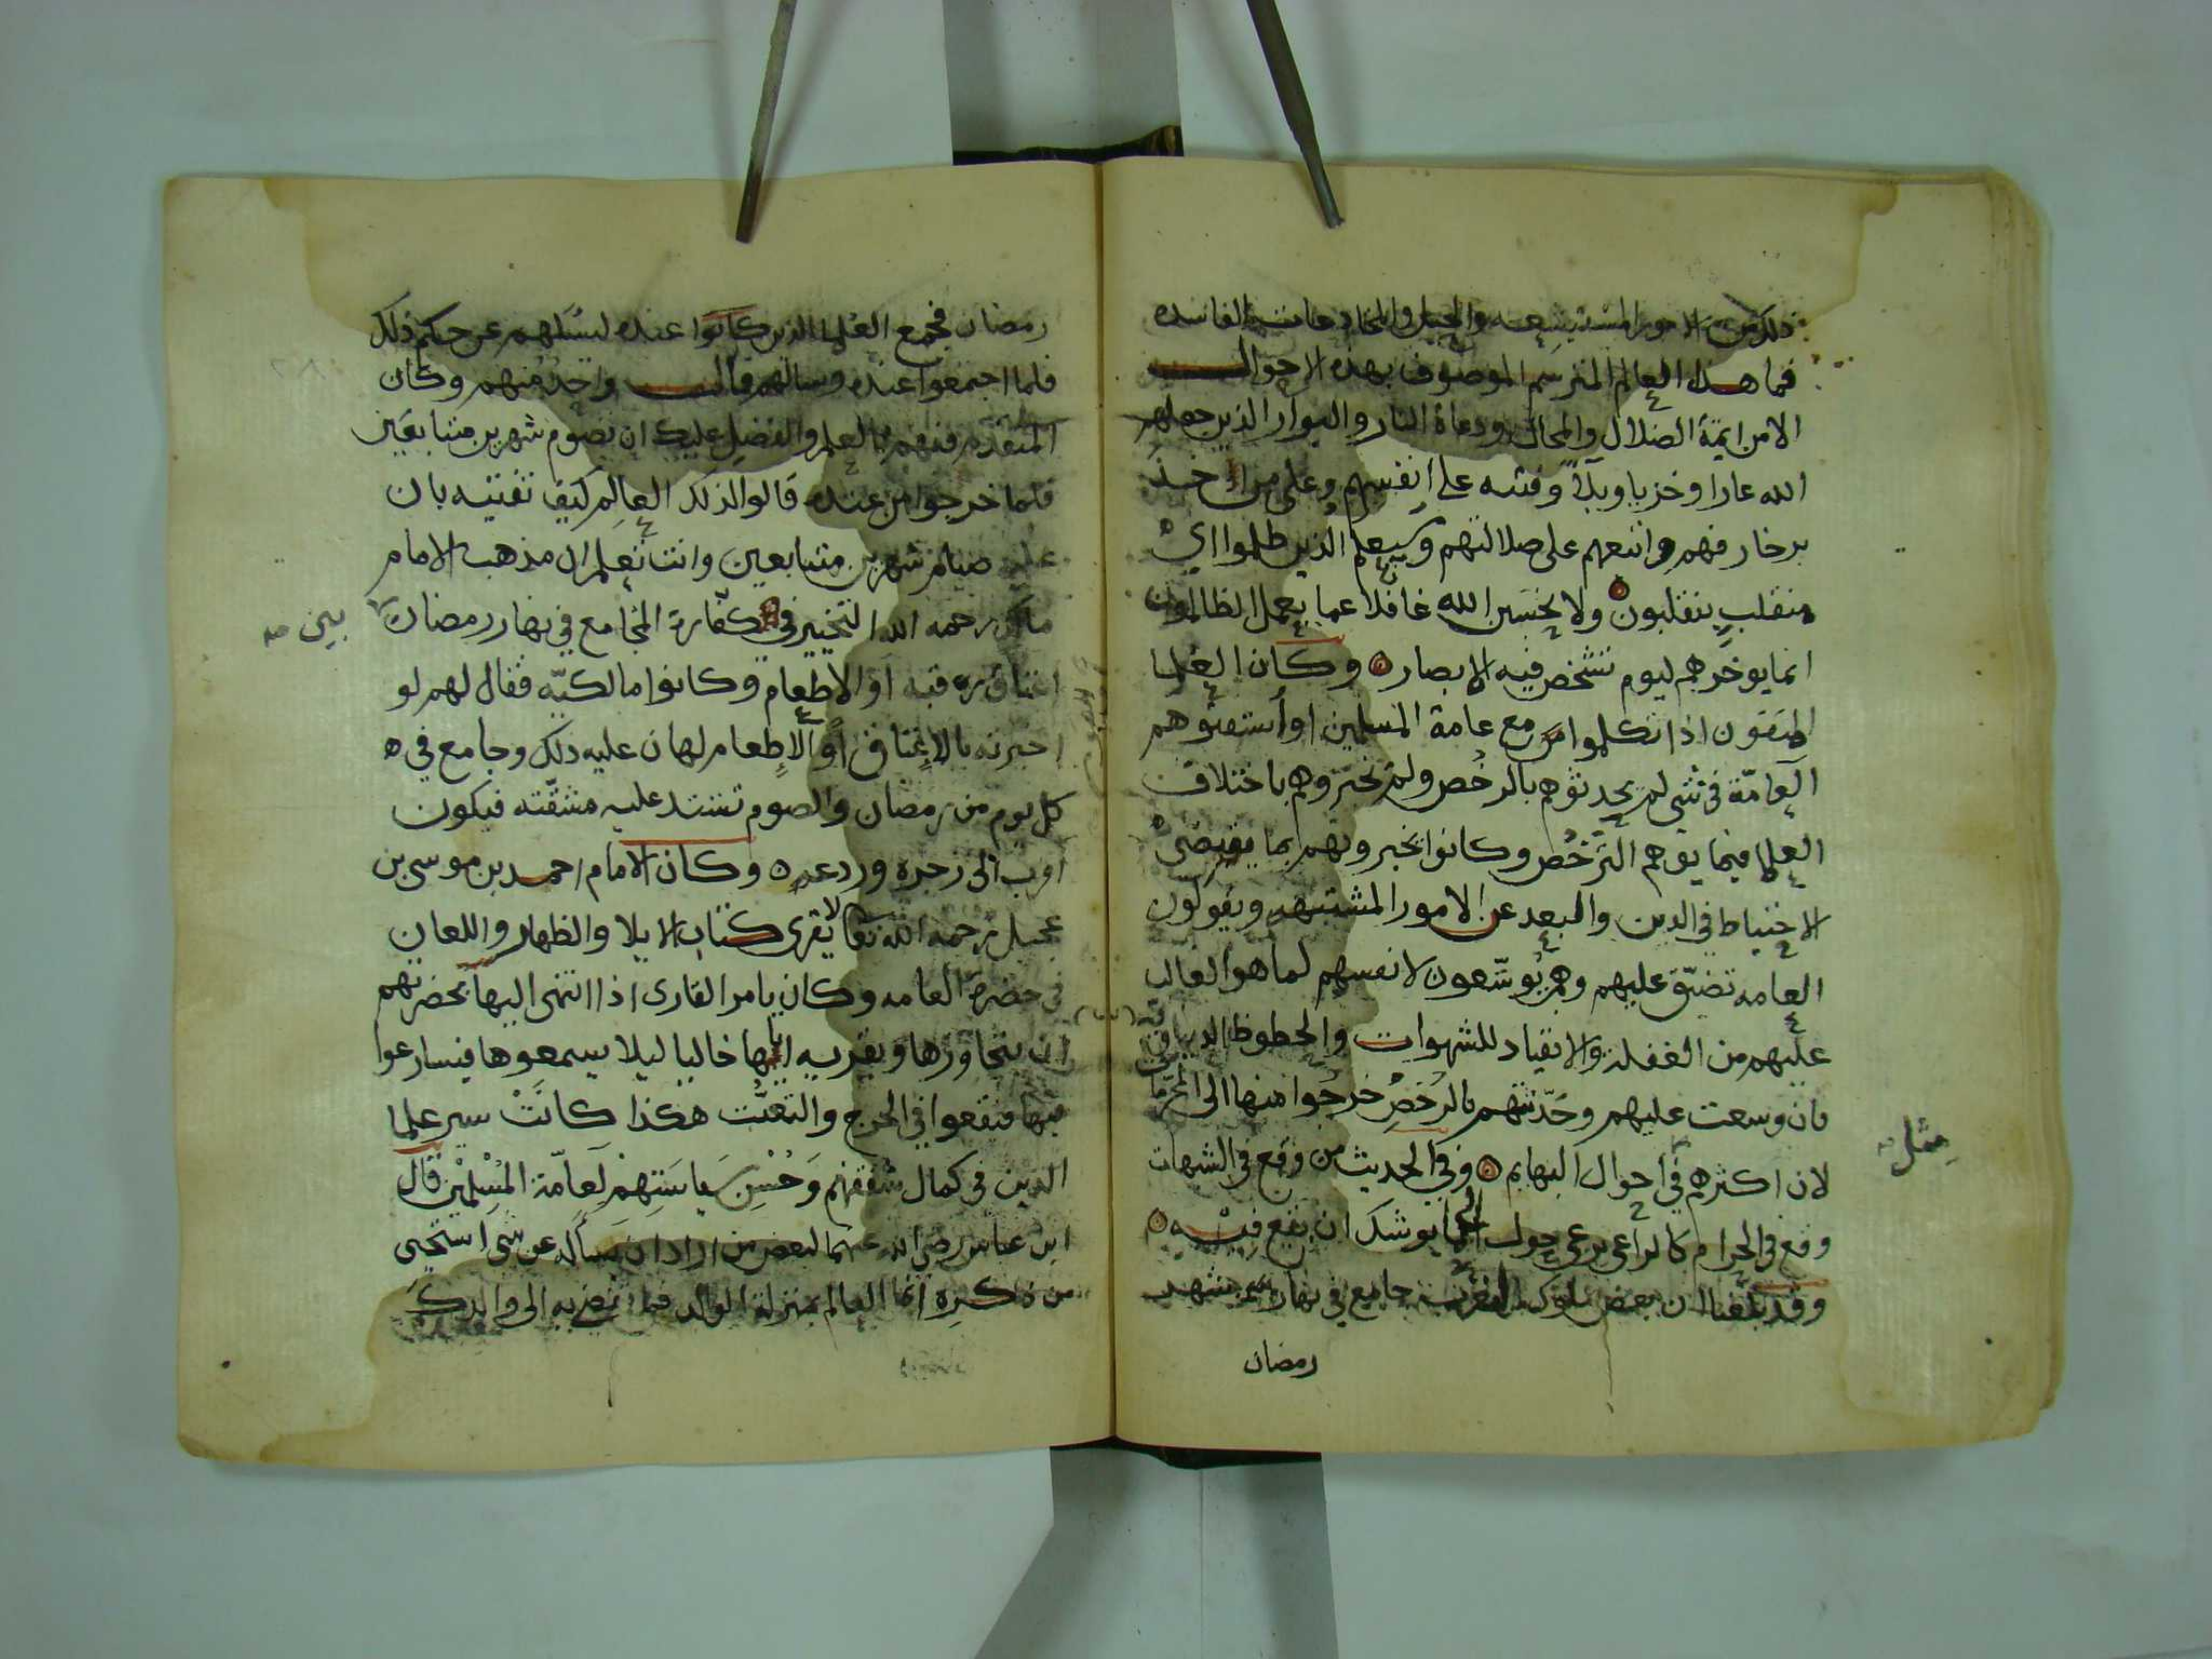 ذلك من الامور المستبشعه والحيل والمخادعات الفاسده
فما هذا العالم المترسم الموصوف بهذه الاحوال
الا من ايمة الضلال والمحال ودعاة النار والبوار الذين جعلهم
الله عارا وخزيا وبلآ وفتنه على انفسهم وعلى من
بزخارفهم واتبعهم على ضلالتهم وسيعلم الذين ظلموا اي
منقلب ينقلبون ولا تحسبن الله غافلا عما يعمل الظالمون
انما يوخرهم ليوم تشخص فيه الابصار وكان العلما
المتقون اذا تكلموا مع عامة المسلمين او استفتوهم
العامّة في شي لم يحدثوهم بالرخص ولم يخبروهم باختلاف
العلما فيما يوهم الترخُص وكانوا يخبرونهم بما يقتضى
الاحتياط في الدين والبعد عن الامور المشتبهه ويقولون
العامه تضيّق عليهم وهم يوسّعون لانفسهم لما هو الغالب
عليهم من الغفلة والانقياد للشهوات والحظوظ الدنياويّه
فان وسعت عليهم وحَدّثتهم بالرُخَصِ خرجوا منها الى المحرّمات
لان اكثرهم في احوال البهايم وفي الحديث من وقع في الشبهات
مثل صه
وقع في الحرام كالراعي يرعى حول الحما يوشك ان يقع فيه
وقد بلغنا ان بعض ملوك المغرب جامع في نهار شهر
رمضان
رمضان فجمع العلما الذين كانوا عنده ليسئلهم عن حكم ذلك
فلما اجتمعوا عنده وسالهم قال واحد منهم وكان
المتقدم فيهم بالعلم والفضل عليك ان تصوم شهرين متتابعين
فلما خرجوا من عنده قالوا لذلك العالم كيف تفتيه بان
عليه صيام شهرين متتابعين وانت تعلم ان مذهب الامام
مالك رحمه الله التخيير في كفارة المجامع في نهار رمضان
بين صه
اعتاق رقبه او الاطعام وكانوا مالكيّه فقال لهم لو
اخبرته بالاعتاق او الاطعام لهان عليه ذلك وجامع في
كل يوم من رمضان والصوم تشتد عليه مشقّته فيكون
اقرب الى زجره وردعه وكان الامام احمد بن موسى بن
عجيل رحمه الله تعا لا يقرى كتاب الايلا والظهار واللعان
في حضرة العامه وكان يامر القارى اذا انتهى اليها بحضرتهم
ان يتجاوزها ويقريه اياها خاليا ليلا يسمعوها فيسارعوا
فيها فيقعوا في الحرج والتعنُّت هكذا كانَتْ سير علما
الدين في كمال شفقتهم وَحُسْنِ سَياسَتِهِمْ لعامّة المُسْلمين قال
ابن عباس رضي الله عنهما لبعض من اراد ان يسأله عن شي استحيى
من ذكره انما العالم بمنزلة الوالد فما تفضي به الى والدك